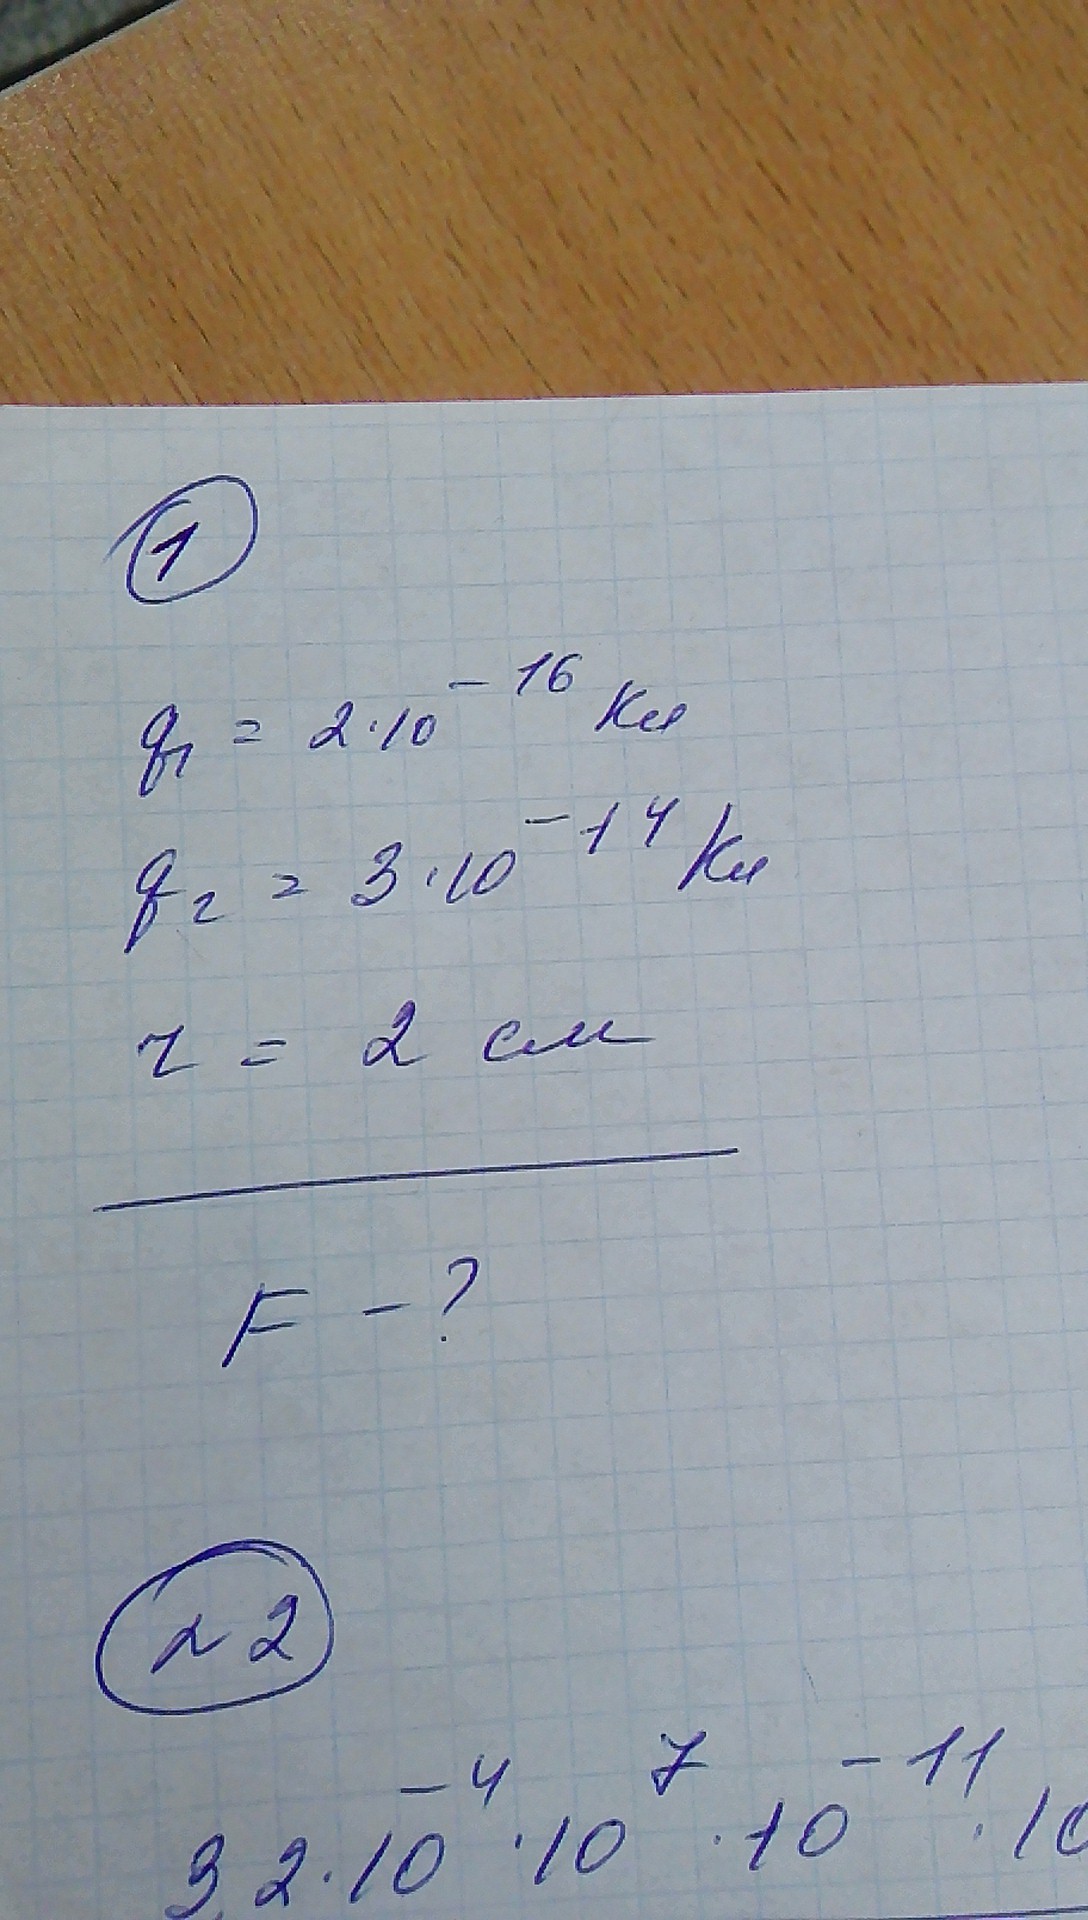 1
q₁ = 2·10⁻¹⁶ Кл
q₂ = 3·10⁻¹⁴ Кл
r = 2 см
F - ?
~2
32·10⁻⁴·10⁷·10⁻¹¹·10